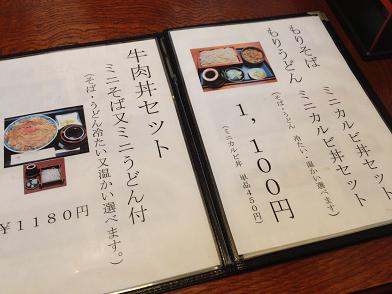 もりそば ミニカルビ丼セット
もりうどん ミニカルビ丼セット
(そば・うどん 冷たい・温かい選べます)
1,100円
(ミニカルビ丼 単品450円)
牛肉丼セット
ミニそば又ミニうどん付
(そば・うどん冷たい又温かい選べます。)
¥1180円